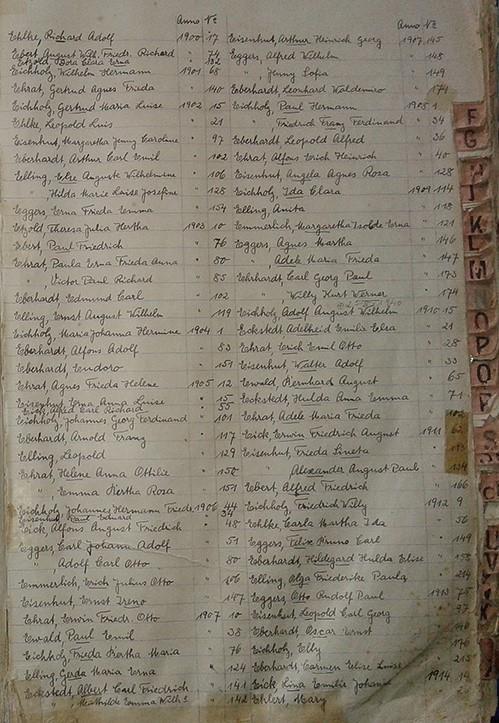 Anno Nr
Ehlke, Richard Adolf 1900 17
Ebert, August Wilh. Friedr. Richard " 74
Etzold Dora Clara Erna " 132
Eichholz, Wilhelm Hermann 1901 68
Ehrat, Gertrud Agnes Frieda " 140
Eichholz, Gertrud Maria Luise 1902 15
Ehlke, Leopold Luis " 21
Eisenhut, Margaretha Jenny Caroline " 97
Eberhardt, Arthur Carl Emil " 102
Elling, Else Auguste Wilhelmine " 106
" , Hilda Marie Luise Josefine " 128
Eggers, Erna Frieda Emma " 154
Etzold, Theresa Julia Hertha 1903 10
Ebert, Paul Friedrich " 76
Ehrat, Paula Erna Frieda Anna " 80
" , Victor Paul Richard " 85
Eberhardt, Edmund Carl " 102
Elling, Ernst August Wilhelm " 119
Eichholz, Maria Johanna Hermine 1904 1
Eberhardt, Alfons Adolf " 83
Eberhardt, Eudoro " 151
Ehrat, Agnes Frieda Helene 1905 12
Eisenhut, Erna Anna Luise " 15
Eick, Alfred Carl Richard " 55
Eichholz, Johannes Georg Ferdinand " 101
Eberhardt, Arnold Franz " 117
Elling, Leopold " 129
Ehrat, Helene Anna Ottilie " 150
" , Emma Hertha Rosa " 151
Eichholz, Johannes Hermann Friedr. 1906 44
Eisenhut, Paul Eduard
Eick, Alfons August Friedrich " 48
Eggers, Carl Johann Adolf " 51
" , Adolf Carl Otto " 80
Emmerlich, Erich Julius Otto " 106
Eisenhut, Ernst Ireno " 147
Ehrat, Erwin Friedr. Otto 1907 10
Ewald, Paul Emil " 38
Eichholz, Frieda Hertha Maria " 76
Elling, Gerda Maria Erna " 124
Eckstedt, Albert Carl Friedrich " 141
" Mathilde Emma Wilh. " 142
Anno Nr
Eisenhut, Arthur Heinrich Georg 1907 145
Eggers, Alfred Wilhelm " 148
" , Jenny Sofia " 149
Eberhardt, Leonhard Waldemiro " 171
Eichholz, Paul Hermann 1908 1
" , Friedrich Franz Ferdinand " 34
Eberhardt Leopold Alfred " 36
Ehrat, Alfons Erich Heinrich " 40
Eisenhut, Angela Agnes Rosa " 128
Eichholz, Ida Clara 1909 114
Elling, Anita " 118
Emmerlich, Margaretha Isolde Erna " 121
Eggers, Agnes Martha " 146
" , Adele Maria Frieda " 147
Ehrhardt, Carl Georg Paul " 173
" , Willy Kurt Werner " 174
Eichholz, Adolf August Wilhelm 1910 15
Eckstedt Adelheid Emilie Elsa " 21
Ehrat, Erich Emil Otto " 28
Eisenhut, Walter Adolf " 33
Ewald, Bernhard August " 65
Eckstedt, Hulda Anna Emma " 71
Ehrat, Adele Maria Frieda " 102
Eick, Erwin Friedrich August 1911 62
Eisenhut, Frieda Lineta " 113
" , Alexander August Paul " 134
Ebert, Alfred Friedrich " 166
Eichholz, Friedrich Willy 1912 9
Ehlke, Carla Martha Ida " 56
Eggers, Felix Bruno Carl " 149
Eberhardt, Hildegard Hulda Elise " 158
Elling, Olga Friederike Paula " 214
Eggers, Otto Rudolf Paul 1913 75
Eisenhut, Leopold Carl Georg " 97
Eberhardt, Oscar Ernst " 146
Eichholz, Elly " 176
Eberhardt, Carmen Elise Luise " 215
Eick, Lina Emilie Johanna 1914 14
Ehlert, Mary
F
G
K
L
M
N
O
P